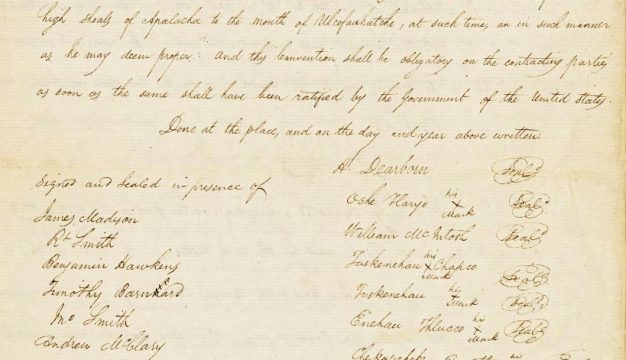 high shoals of Apalacha to the mouth of Ulcofauhatche, at such time, an in such manner
as he may deem proper: and this Convention shall be obligatory on the contracting parties
as soon as the same shall have been ratified by the Government of the United States.
Done at the place, and on the day and year above written.
H. Dearborn Seal
Signed and Sealed in presence of
Oche Harjo his x Mark Seal
James Madison
William McIntosh Seal
Rt Smith
Tuskenehau Chapco his x Mark Seal
Benjamin Hawkins
Tuskenehau his x Mark Seal
Timothy Barnard
Enehau Thlucco his x Mark Seal
Jno Smith
Andrew McClary
his